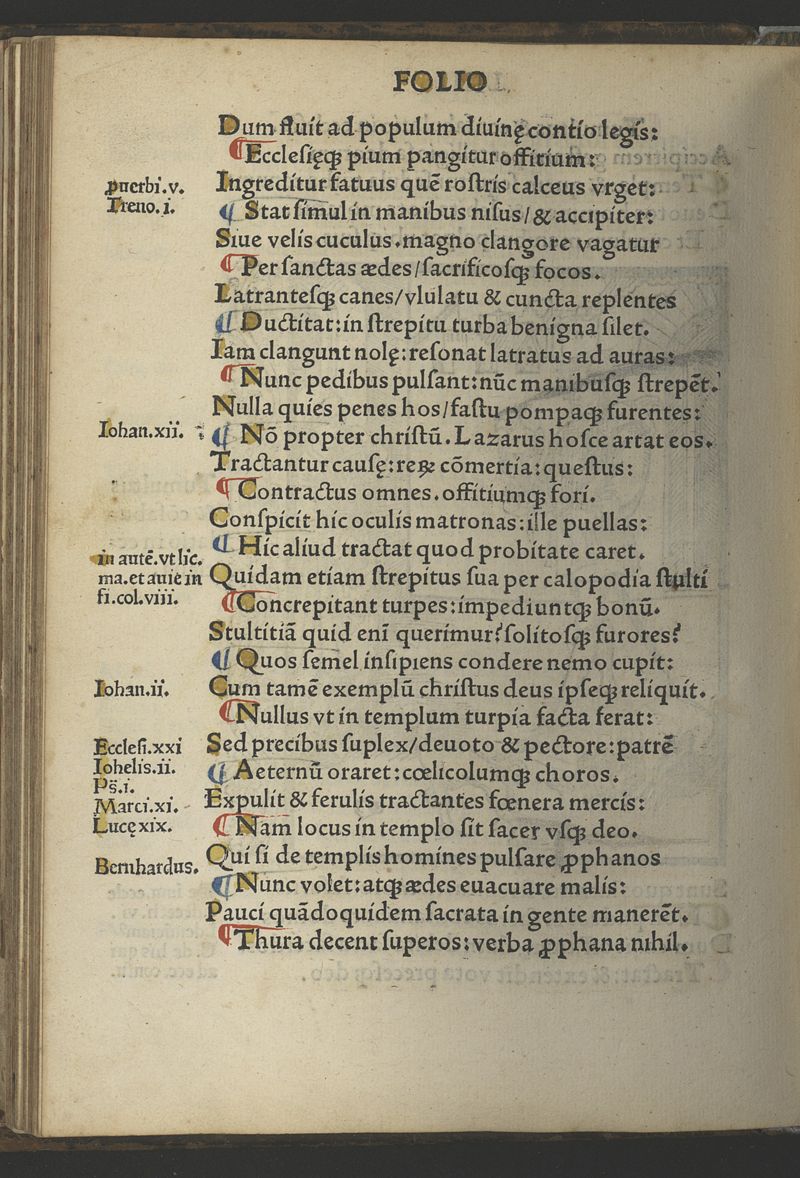 FOLIO
Dum fluit ad populum diuinę contio legis:
¶ Ecclesięqꝫ pium pangitur offitium:
ꝓuerbi.v.
Treno.i.
Ingreditur fatuus quē roſtris calceus vrget:
¶ Stat ſimul in manibus niſus/& accipiter:
Siue velis cuculus.magno clangore vagatur
¶ Per ſanctas ædes/ſacrificoſqꝫ focos.
Latranteſqꝫ canes/vlulatu & cuncta replentes
¶ Ductitat:in ſtrepitu turba benigna ſilet.
Iam clangunt nolę:reſonat latratus ad auras:
¶ Nunc pedibus pulſant:nūc manibuſqꝫ ſtrepēt.
Nulla quies penes hos/faſtu pompaqꝫ furentes:
Iohan.xii.
¶ Nō propter chriſtū.Lazarus hoſce artat eos.
Tractantur cauſę:reꝝ cōmertia:queſtus:
¶ Contractus omnes.offitiumqꝫ fori.
Conſpicit hic oculis matronas:ille puellas:
¶ Hic aliud tractat quod probitate caret.
in autē.vt lic.
ma.et auie in
fi.col.viii.
Quidam etiam ſtrepitus ſua per calopodia ſtulti
¶ Concrepitant turpes:impediuntqꝫ bonū.
Stultitiā quid enī querimur?ſolitoſqꝫ furores?
¶ Quos ſemel inſipiens condere nemo cupit:
Iohan.ii.
Cum tamē exemplū chriſtus deus ipſeqꝫ reliquit.
¶ Nullus vt in templum turpia facta ferat:
Eccleſi.xxi
Iohelis.ii.
Ps̄.i.
Marci.xi.
Lucę xix.
Sed precibus ſuplex/deuoto & pectore:patrē
¶ Aeternū oraret:cœlicolumqꝫ choros.
Expulit & ferulis tractantes fœnera mercis:
¶ Nam locus in templo ſit ſacer vſqꝫ deo.
Bernhardus.
Qui ſi de templis homines pulſare ꝓphanos
¶ Nunc volet:atqꝫ ædes euacuare malis:
Pauci quādoquidem ſacrata in gente manerēt.
¶ Thura decent ſuperos:verba ꝓphana nihil.